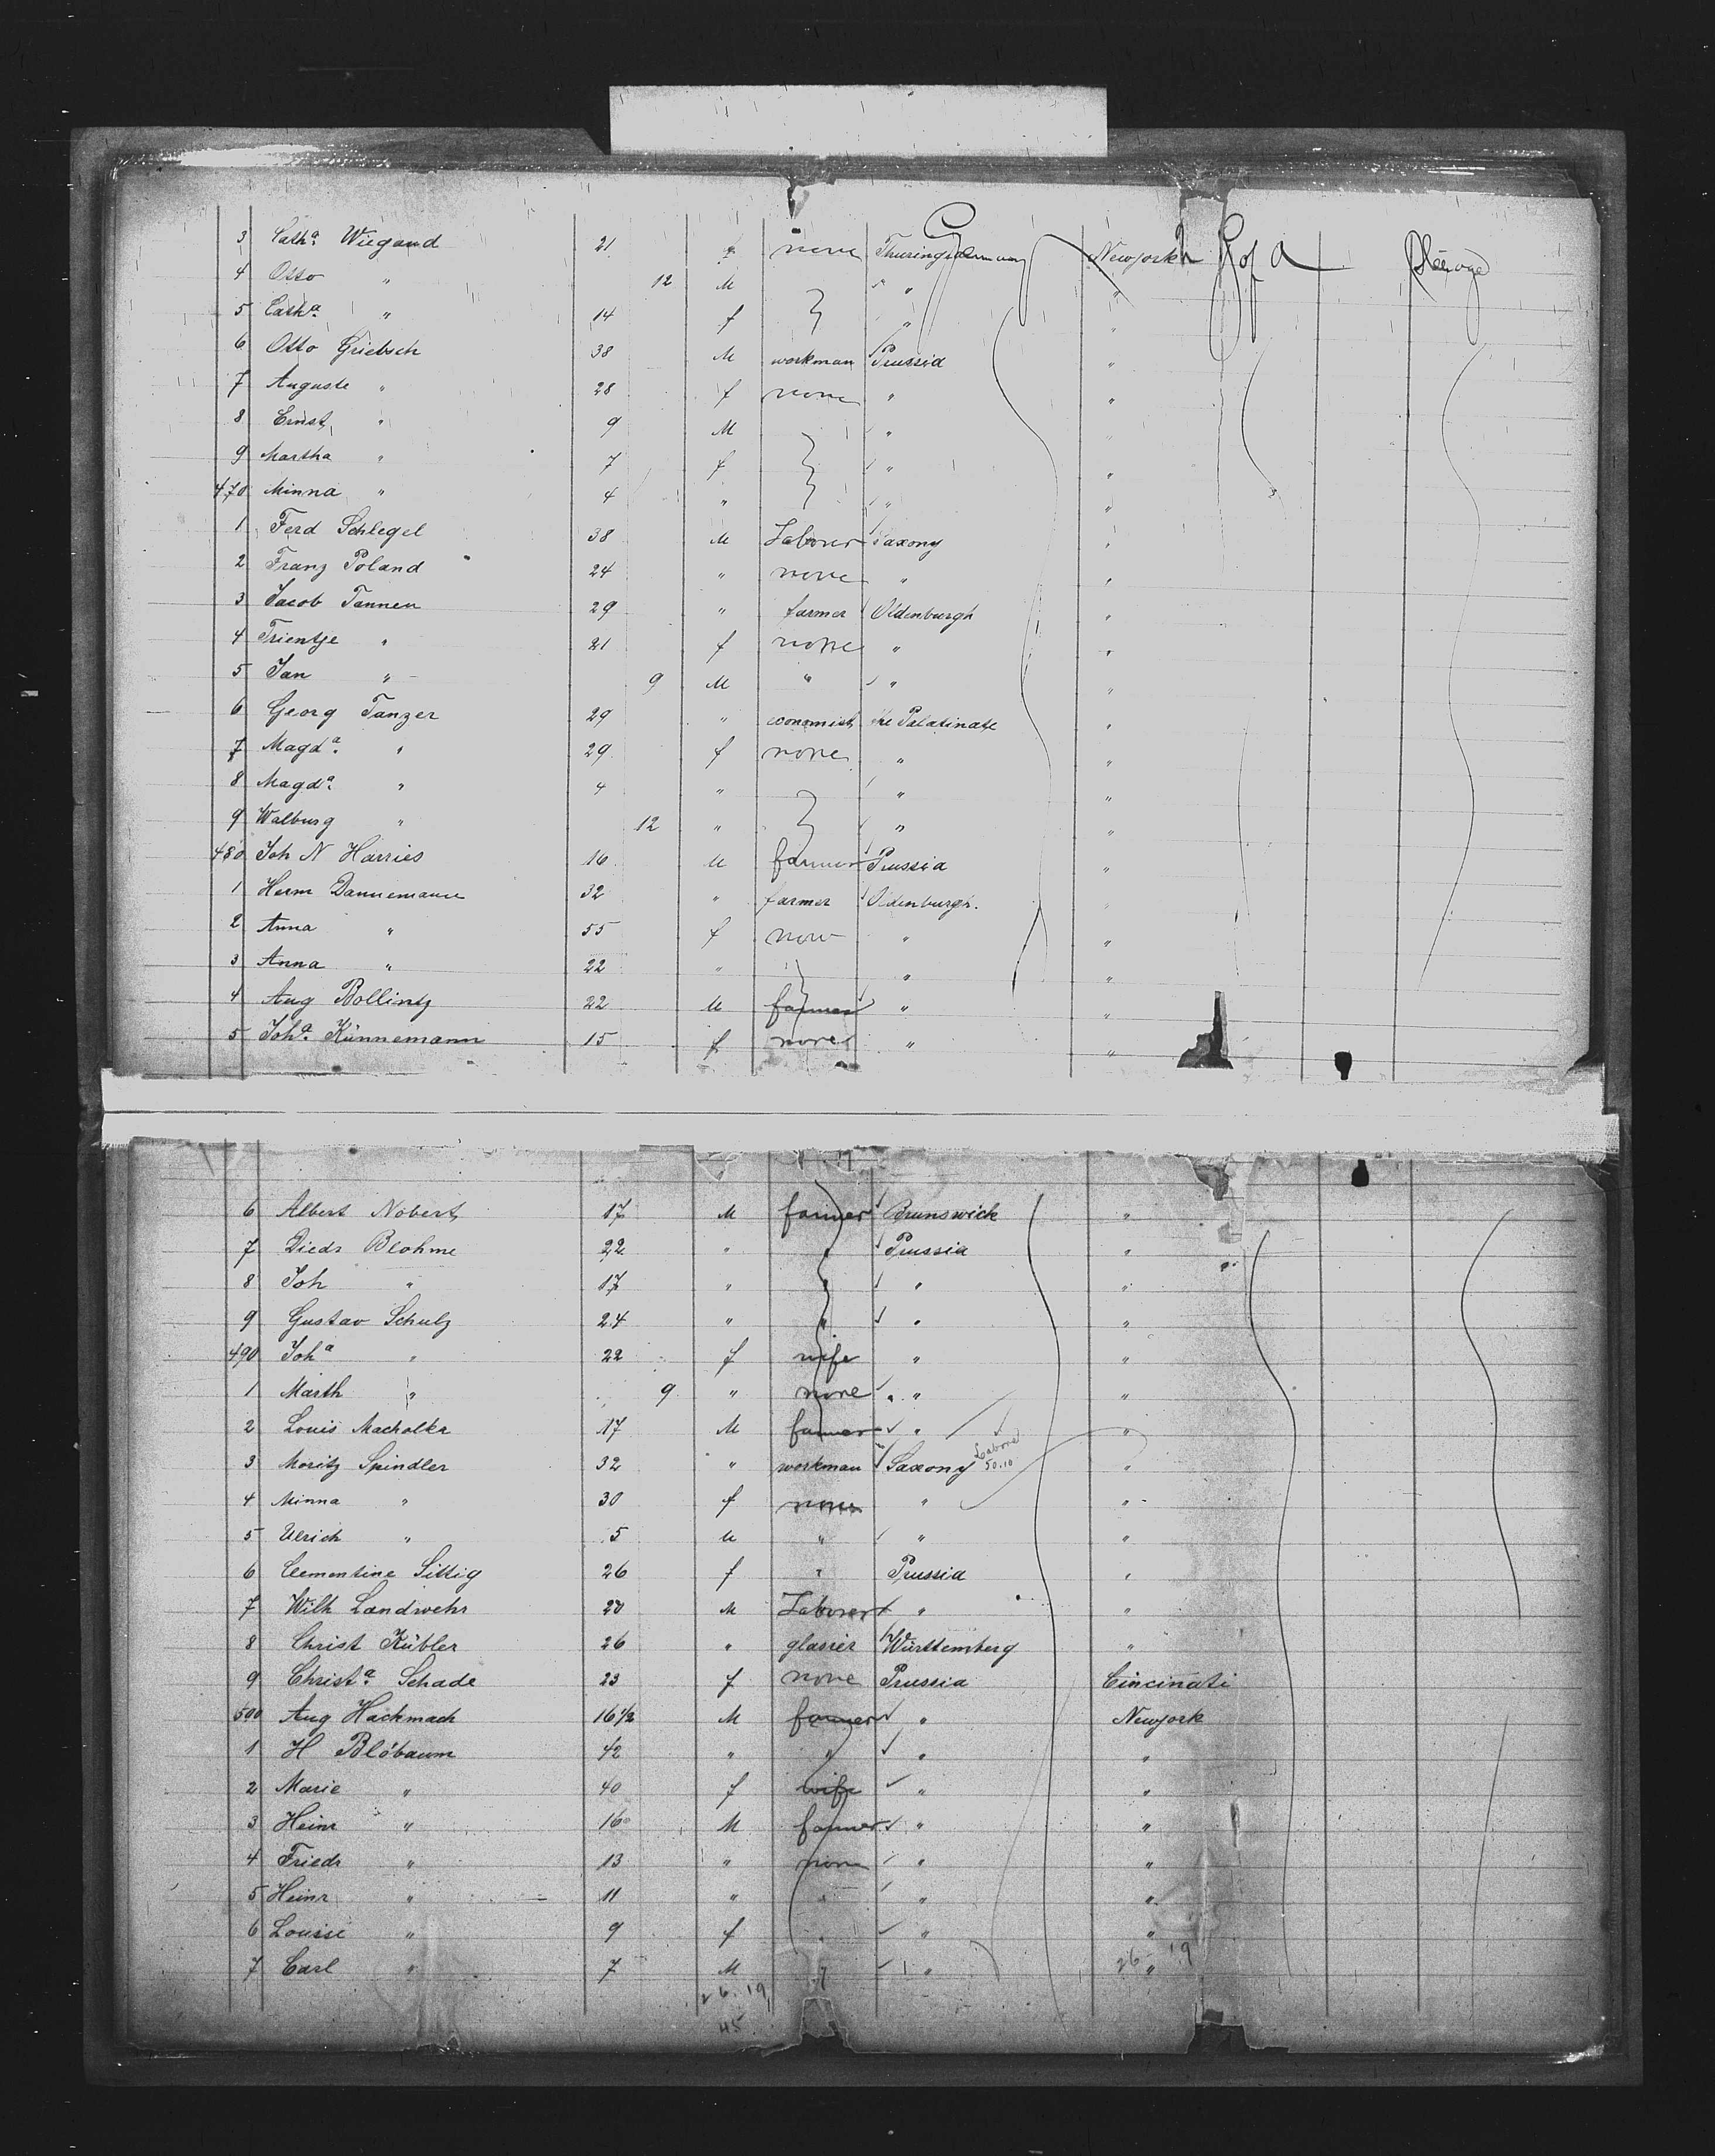 3 Cath.a Wiegand 21 f none Thuringia Germany Newyork U S of A Steerage
4 Otto " 12 M " "
5 Cath.a " 14 f " "
6 Otto Griebsch 38 M workman Prussia "
7 Auguste " 28 f none " "
8 Ernst " 9 M " "
9 Martha " 7 f " "
470 Minna " 4 " " "
1 Ferd Schlegel 38 M Laborer Saxony "
2 Franz Poland 24 " none " "
3 Jacob Tannen 29 " farmer Oldenburgh "
4 Trientje " 21 f none " "
5 Jan " 9 M " " "
6 Georg Tanzer 29 " economist the Palatinate "
7 Magd.a " 29 f none " "
8 Magd.a " 4 " " "
9 Walburg " 12 " " "
480 Joh N Harries 16 M farmer Prussia "
1 Herm Dannemann 32 " farmer Oldenburgh. "
2 Anna " 55 f none " "
3 Anna " 22 " " "
4 Aug Bollintz 22 M farmer " "
5 Joh.a Künnemann 15 f none " "
6 Albert Nobert 17 M farmer Brunswick "
7 Diedr Blohme 22 " " Prussia "
8 Joh " 17 " " " "
9 Gustav Schulz 24 " " " "
490 Joh.a " 22 f wife " "
1 Marth " 9 " none " "
2 Louis Macholka 17 M farmer " "
3 Moritz Spindler 32 " workman Saxony Labore 50.10 "
4 Minna " 30 f none " "
5 Ulrich " 5 M " " "
6 Clementine Sittig 26 f " Prussia "
7 Wilh Landwehr 20 M Laborer " "
8 Christ Kübler 26 " glasier Württemberg "
9 Christ.a Schade 23 f none Prussia Cincinati
500 Aug Hackmach 16 1/2 M farmer " Newyork
1 H Blöbaum 42 " " " "
2 Marie " 40 f wife " "
3 Heinr " 16 M farmer " "
4 Friedr " 13 " none " "
5 Heinr " 11 " " " "
6 Louise " 9 f " " "
7 Carl " 7 M " " "
26 19
26. 19
45